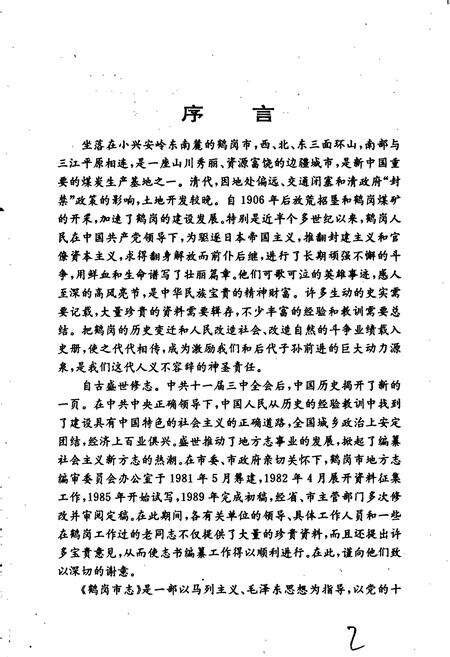 序 言
坐落在小兴安岭东南麓的鹤岗市，西、北、东三面环山，南部与
三江平原相连，是一座山川秀丽、资源富饶的边疆城市，是新中国重
要的煤炭生产基地之一。清代，因地处偏远、交通闭塞和清政府“封
禁”政策的影响，土地开发较晚。自1906年后放荒招垦和鹤岗煤矿
的开采，加速了鹤岗的建设发展。特别是近半个多世纪以来，鹤岗人
民在中国共产党领导下，为驱逐日本帝国主义，推翻封建主义和官
僚资本主义，求得翻身解放而前仆后继，进行了长期顽强不懈的斗
争，用鲜血和生命谱写了壮丽篇章。他们可歌可泣的英雄事迹，感人
至深的高风亮节，是中华民族宝贵的精神财富。许多生动的史实需
要记载，大量珍贵的资料需要辑存，不少丰富的经验和教训需要总
结。把鹤岗的历史变迁和人民改造社会、改造自然的斗争业绩载入
史册，使之代代相传，成为激励我们和后代子孙前进的巨大动力源
泉，是我们这代人义不容辞的神圣责任。
自古盛世修志。中共十一届三中全会后，中国历史揭开了新的
一页。在中共中央正确领导下，中国人民从历史的经验教训中找到
了建设具有中国特色的社会主义的正确道路，全国城乡政治上安定
团结，经济上百业俱兴。盛世推动了地方志事业的发展，掀起了编纂
社会主义新方志的热潮。在市委、市政府亲切关怀下，鹤岗市地方志
编审委员会办公室于1981年5月筹建，1982年4月展开资料征集
工作，1985年开始试写，1989年完成初稿，经省、市主管部门多次修
改并审阅定稿。在此期间，各有关单位的领导、具体工作人员和一些
在鹤岗工作过的老同志不仅提供了大量的珍贵资料，而且还提出许
多宝贵意见，从而使志书编纂工作得以顺利进行。在此，谨向他们致
以深切的谢意。
《鹤岗市志》是一部以马列主义、毛泽东思想为指导，以党的十
2